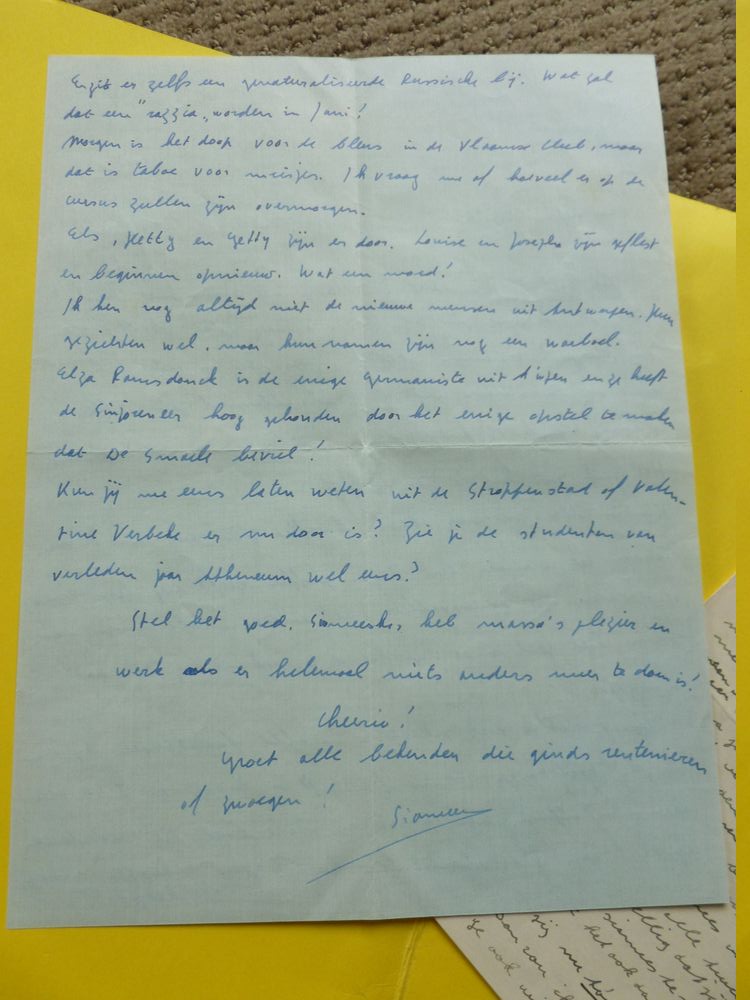 Er zit er zelfs een genaturaliseerde Russische bij. Wat zal
dat een "razzia" worden in Juni!
Morgen is het doop voor de bleus in de Vlaamse Club, maar
dat is taboe voor meisjes. Ik vraag me af hoeveel er op de
cursus zullen zijn overmorgen.
Els, Hetty en Getty zijn er door. Louise en Josepha zijn geflest
en beginnen opnieuw. Wat een moed!
Ik ken nog altijd niet de nieuwe mensen uit Antwerpen. Hun
gezichten wel, maar hun namen zijn nog een warboel.
Elza Ramsdonck is de enige Germaniste uit en ze heeft
de Sinjoren eer hoog gehouden door het enige opstel te maken
dat De Smaele beviel!
Kun jij me eens laten weten uit de Stroppenstad of Valen-
tine Verbeke er nu door is? Zie je de studenten van
verleden jaar Atheneum wel eens?
Stel het goed, heb massa's plezier en
werk als er helemaal niets anders meer te doen is!
Cheerio!
Groet alle bekenden die ginds rentenieren
of zwoegen!